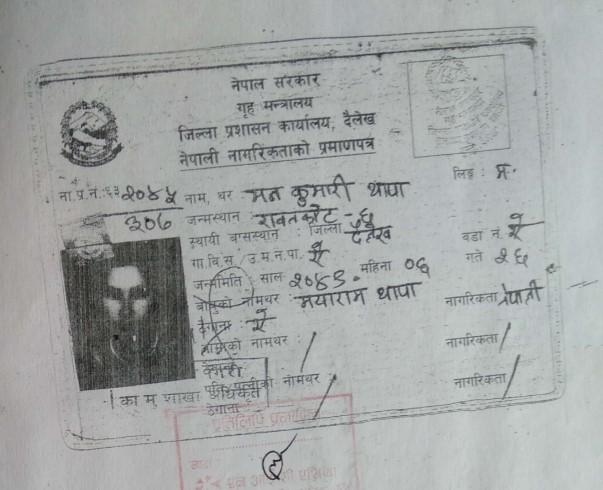 नेपाल सरकार
गृह मन्त्रालय
जिल्ला प्रशासन कार्यालय, दैलेख
नेपाली नागरिकताको प्रमाणपत्र
लिङ्ग : म.
ना.प्र.नं.: ६३ २०४५ नाम, थर मन कुमारी थापा
३०७ जन्मस्थान : रावतकोट - ६
स्थायी बासस्थान : जिल्ला दैलेख
गा.वि.स. / उ.म.न.पा. ऐ वडा नं. ऐ
जन्ममिति : साल २०४३ महिना ०६ गते २६
बाबुको नामथर : मयाराम थापा नागरिकता नेपाली
ठेगाना ऐ
आमाको नामथर : / नागरिकता /
ठेगाना
पति/पत्नीको नामथर : / नागरिकता /
का मु शाखा अधिकृत
ठेगाना
प्रतिलिपि